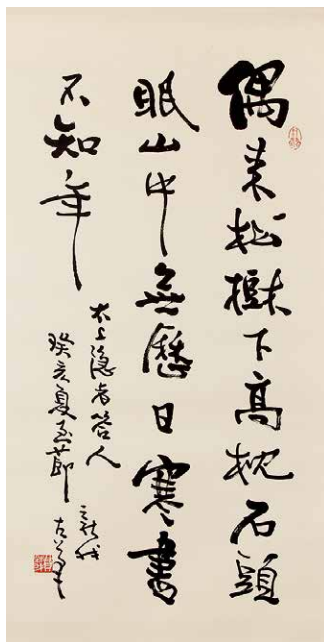 偶來松樹下高枕石頭
眠山中無曆日寒盡
不知年
太上隱者答人
癸亥夏至節